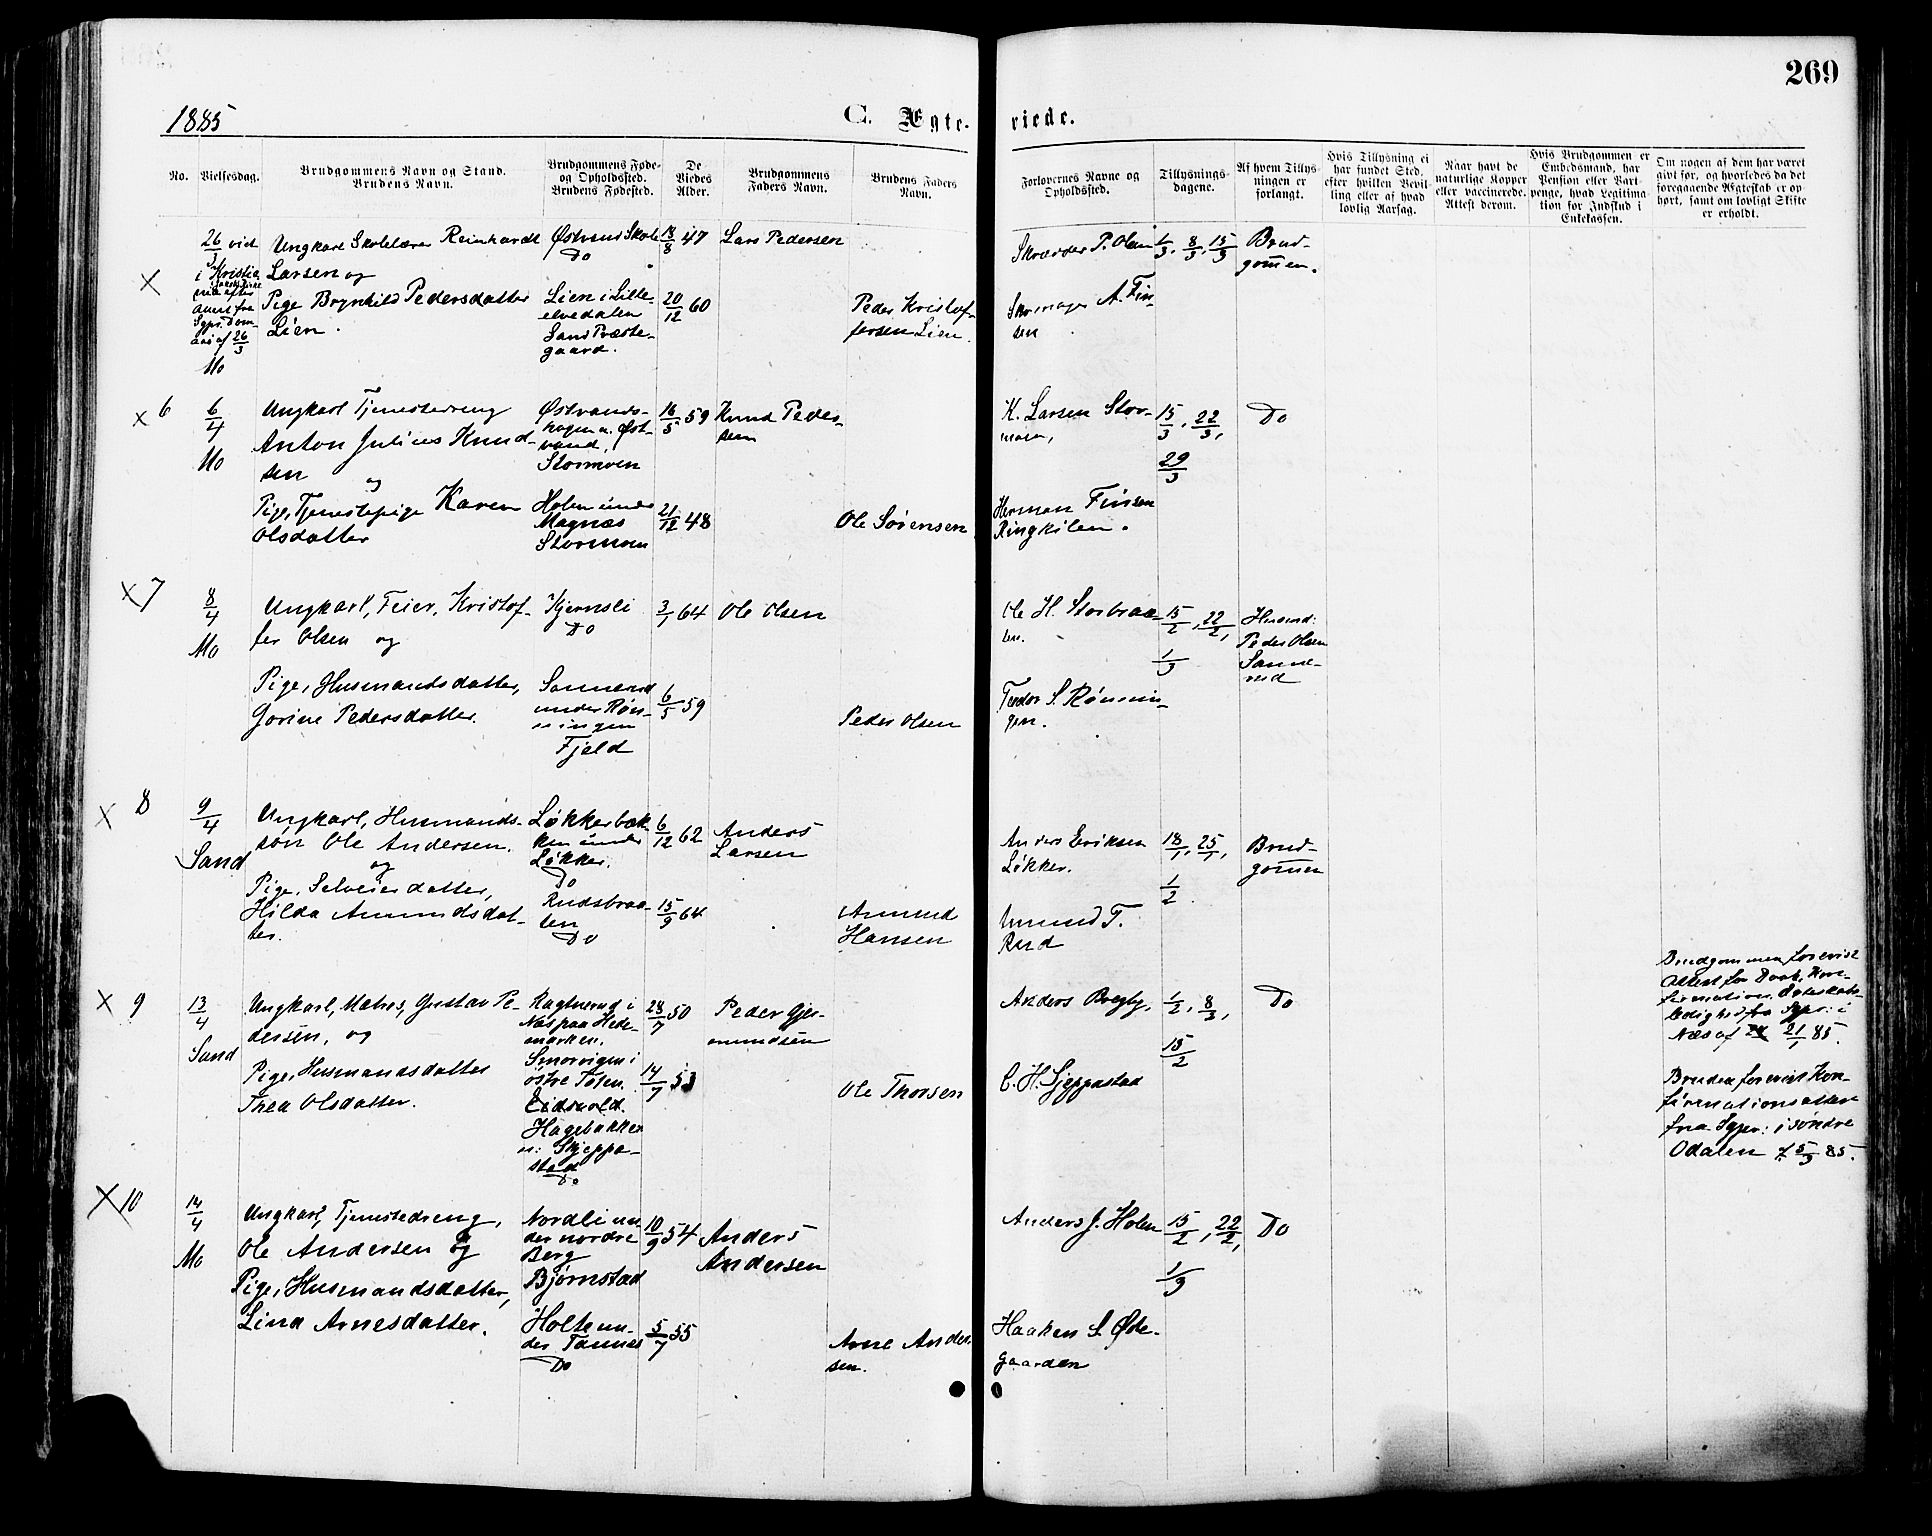 269
1885
C. Ægte-
viede.
No.
Vielsesdag.
Brudgommens Navn og Stand.
Brudens Navn.
Brudgommens Føde-
og Opholdssted.
Brudens Fødested.
De
Viedes
Alder.
Brudgommens
Faders Navn.
Brudens Faders
Navn.
Forlovernes Navne og
Opholdssted.
Tillysnings-
dagene.
Af hvem Tillys-
ningen er
forlangt.
Hvis Tillysning ei
har fundet Sted,
efter hvilken Bevil-
ling eller af hvad
lovlig Aarsag.
Naar havt de
naturlige Kopper
eller vaccinerede.
Attest derom.
Hvis Brudgommen er
Embedsmand, har
Pension eller Vart-
penge, hvad Legitima-
tion for Indskud i
Enkekassen.
Om nogen af dem har været
givt før, og hvorledes da det
foregaaende Ægteskab er op-
hørt, samt om lovligt Skifte
er erholdt.
X
26/3 vid
i Kristia
nia efter
fra
Sgpr. Dom-
aas af 26/3
Mo
Ungkarl Skolelærer Reinhardt
Larsen og
Pige Brynhild Pedersdatter
Lien.
Østvend Skole
Do
Lien i Lille-
elvedalen
Sand Præste-
gaard.
18/8 47
20/12 60
Lars Pedersen
Peder Kristof-
fersen Lien.
Skrædder P. Olsen
Skomager A. Fin-
sen
1/3, 8/3, 15/3
Brud-
gommen.
x 6
6/4
Mo
Ungkarl Tjenestedreng
Anton Julius Knud-
sen og
Pige, Tjenestepige Karen
Olsdatter
Østvands-
hagen u. Øst-
vand,
Stormoen
Holen under
Magnæs
Stormoen
16/5 59
21/12 48
Knud Peder-
sen
Ole Sørensen
K. Larsen Stor-
moen,
Herman Finsen
Ringkilen.
15/3, 22/3,
29/3
Do
x 7
8/4
Mo
Ungkarl, Feier, Kristof-
fer Olsen og
Pige, Husmandsdatter,
Gorine Pedersdatter.
Kjernsli
Do
Sannerud
under Røn-
ningen
Fjeld
3/1 64
6/5 59
Ole Olsen
Peder Olsen
Ole H. Storbraa-
ten.
Teodor S. Rønnin-
gen.
15/2, 22/2,
1/3
Husmd:
Peder Olsen
Sanne-
rud
x 8
9/4
Sand
Ungkarl, Husmands-
søn Ole Andersen.
og
Pige, Selveierdatter,
Hilda Amundsdat-
ter.
Løkkerbæk-
ken under
Løkker.
Do
Rudsbraa-
ten
Do
6/12 62
15/9 64
Anders
Larsen
Amund
Hansen
Anders Eriksen
Løkker.
Amund T.
Rud
18/1, 25/1,
1/2
Brud-
gommen
x 9
13/4
Sand
Ungkarl, Matros, Gustav Pe-
dersen, og
Pige, Husmandsdatter
Thea Olsdatter.
i
Næs paa Hede-
marken.
Smorvigen i
østre Toten.
Eidsvold.
Hagebakken
u: Skjeppe-
stad
Do
28/7 50
14/7 53
Peder Gjer-
mundsen
Ole Thorsen
Anders Bregby,
C. H. Sjeppestad
1/2, 8/2,
15/2
Do
Brudgommen forevist
Attest for Daab, Kon-
firmation, Ægteskabs-
ledighed fra Sgpr: i
Næs af 21/1 85.
Bruden forevist Kon-
firmationsattest
fra Sgpr: i søndre
Odalen af 5/3 85.
X 10
14/4
Mo
Ungkarl, Tjenestedreng,
Ole Andersen og
Pige, Husmandsdatter,
Lina Arnesdatter.
Nordli un-
der nordre
Berg
Bjørnstad
Holte un-
der Tannes
Do
10/9 54
5/7 55
Anders
Andersen
Arne Ander-
sen.
Anders J. Holen
Haaken S. Øde-
gaarden
15/2, 22/2,
1/3
Do